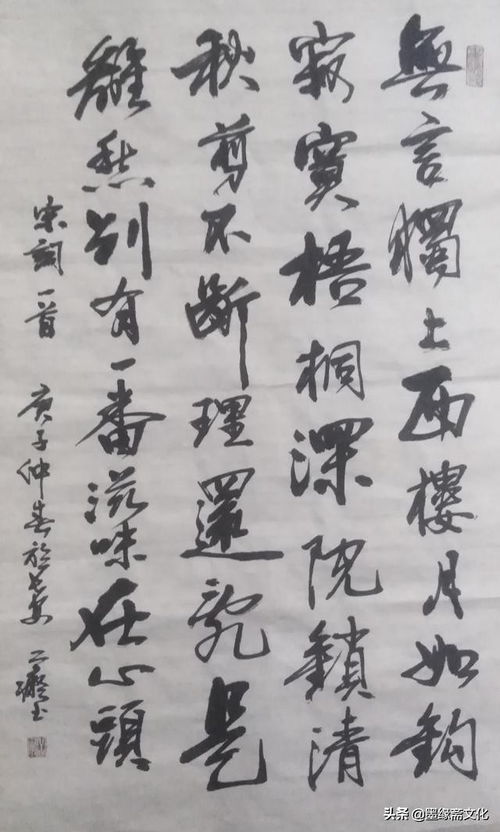 無言獨上西樓月如鈎
寂寞梧桐深院鎖清
秋剪不斷理還亂是
離愁別有一番滋味在心頭
宋詞一首 庚子仲春於長安
头条 @墨缘斋文化